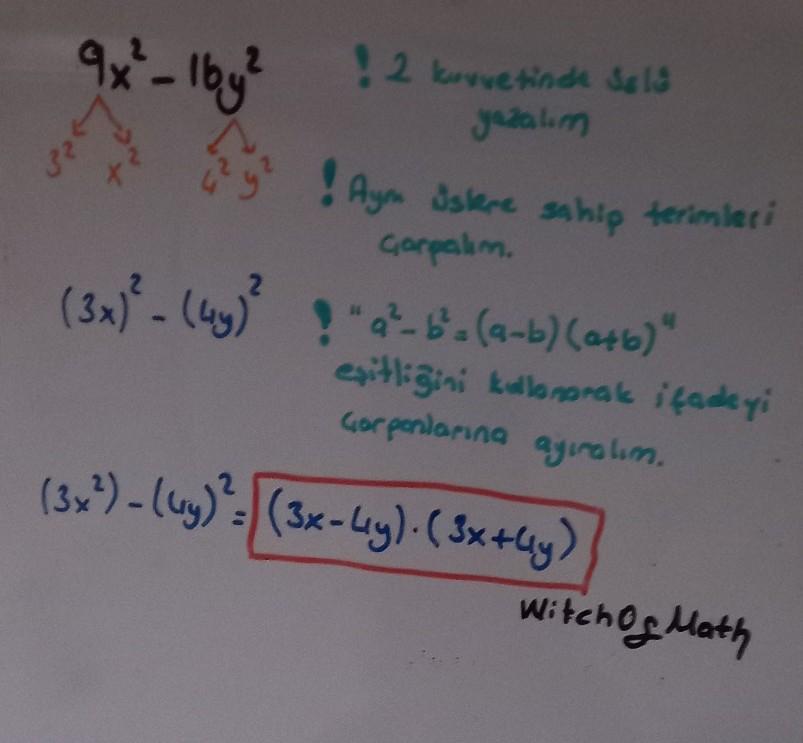 9x² - 16y²
3² x² 4² y²
! 2 kuvvetinde üslü
yazalım
! Aynı üslere sahip terimleri
Çarpalım.
(3x)² - (4y)²
! "a² - b² = (a-b)(a+b)"
eşitliğini kullanarak ifadeyi
Çarpanlarına ayıralım.
(3x²) - (4y)² = (3x-4y).(3x+4y)
WitchOfMath